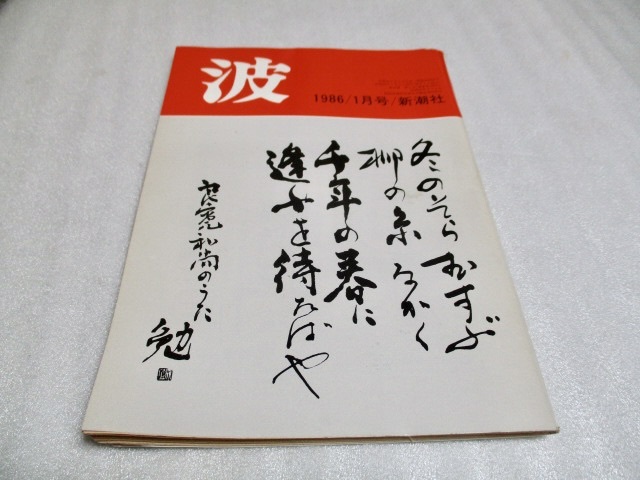 波
1986/1月号/新潮社
冬のそら むすぶ
柳の糸 ながく
千年の春に
逢ふを待たばや
良寛和尚のうた
勉